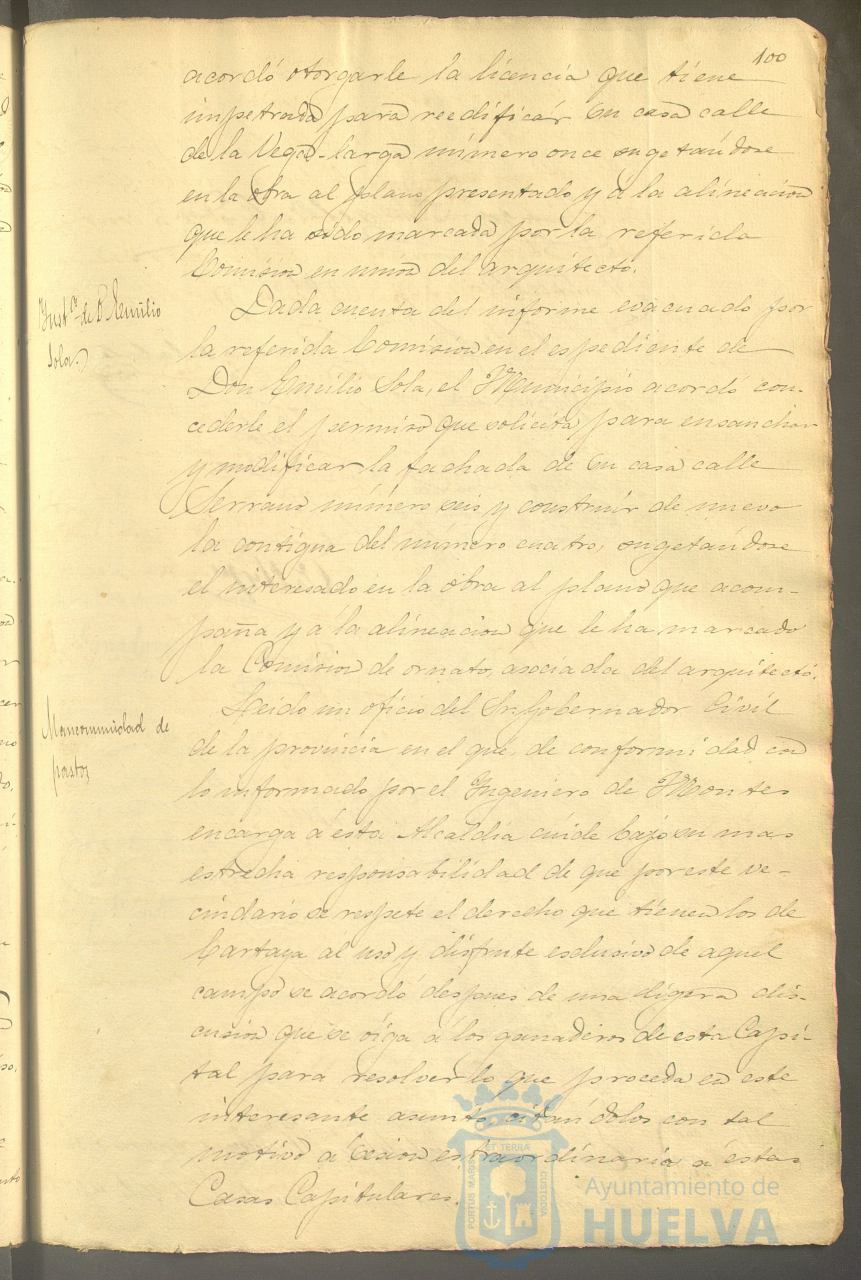 100
acordó otorgarle la licencia que tiene
impetrada para reedificár su casa calle
de la Vega-larga número once sugetándose
en la obra al plano presentado y á la alineacion
que le ha sido marcada por la referida
Comision en union del arquitecto.
Inst.ª de D. Emilio
Sola.
Dada cuenta del informe evacuado por
la referida Comision en el espediente de
Don Emilio Sola, el Municipio acordó con-
cederle el permiso que solicita para ensanchar
y modificar la fachada de su casa calle
Serrano número seis y construir de nuevo
la contigua del número cuatro, sugetándose
el interesado en la obra al plano que acom-
paña y á la alineacion que le ha marcado
la Comision de ornato, asociada del arquitecto.
Mancomunidad de
pastos
Leido un oficio del Sr. Gobernador Civil
de la provincia en el que, de conformidad con
lo informado por el Ingeniero de Montes
encarga á esta Alcaldia cuide bajo su mas
estrecha responsabilidad de que por este ve-
cindario se respete el derecho que tienen los de
Cartaya al uso y disfrute esclusivo de aquel
campo se acordó despues de una ligera dis-
cusion que se oiga á los ganaderos de esta Capi-
tal para resolver lo que proceda en este
interesante asunto, citándolos con tal
motivo á sesion estraordinaria á estas
Casas Capitulares.
PORTUS MARIS ET TERRÆ CUSTODIA
Ayuntamiento de
HUELVA